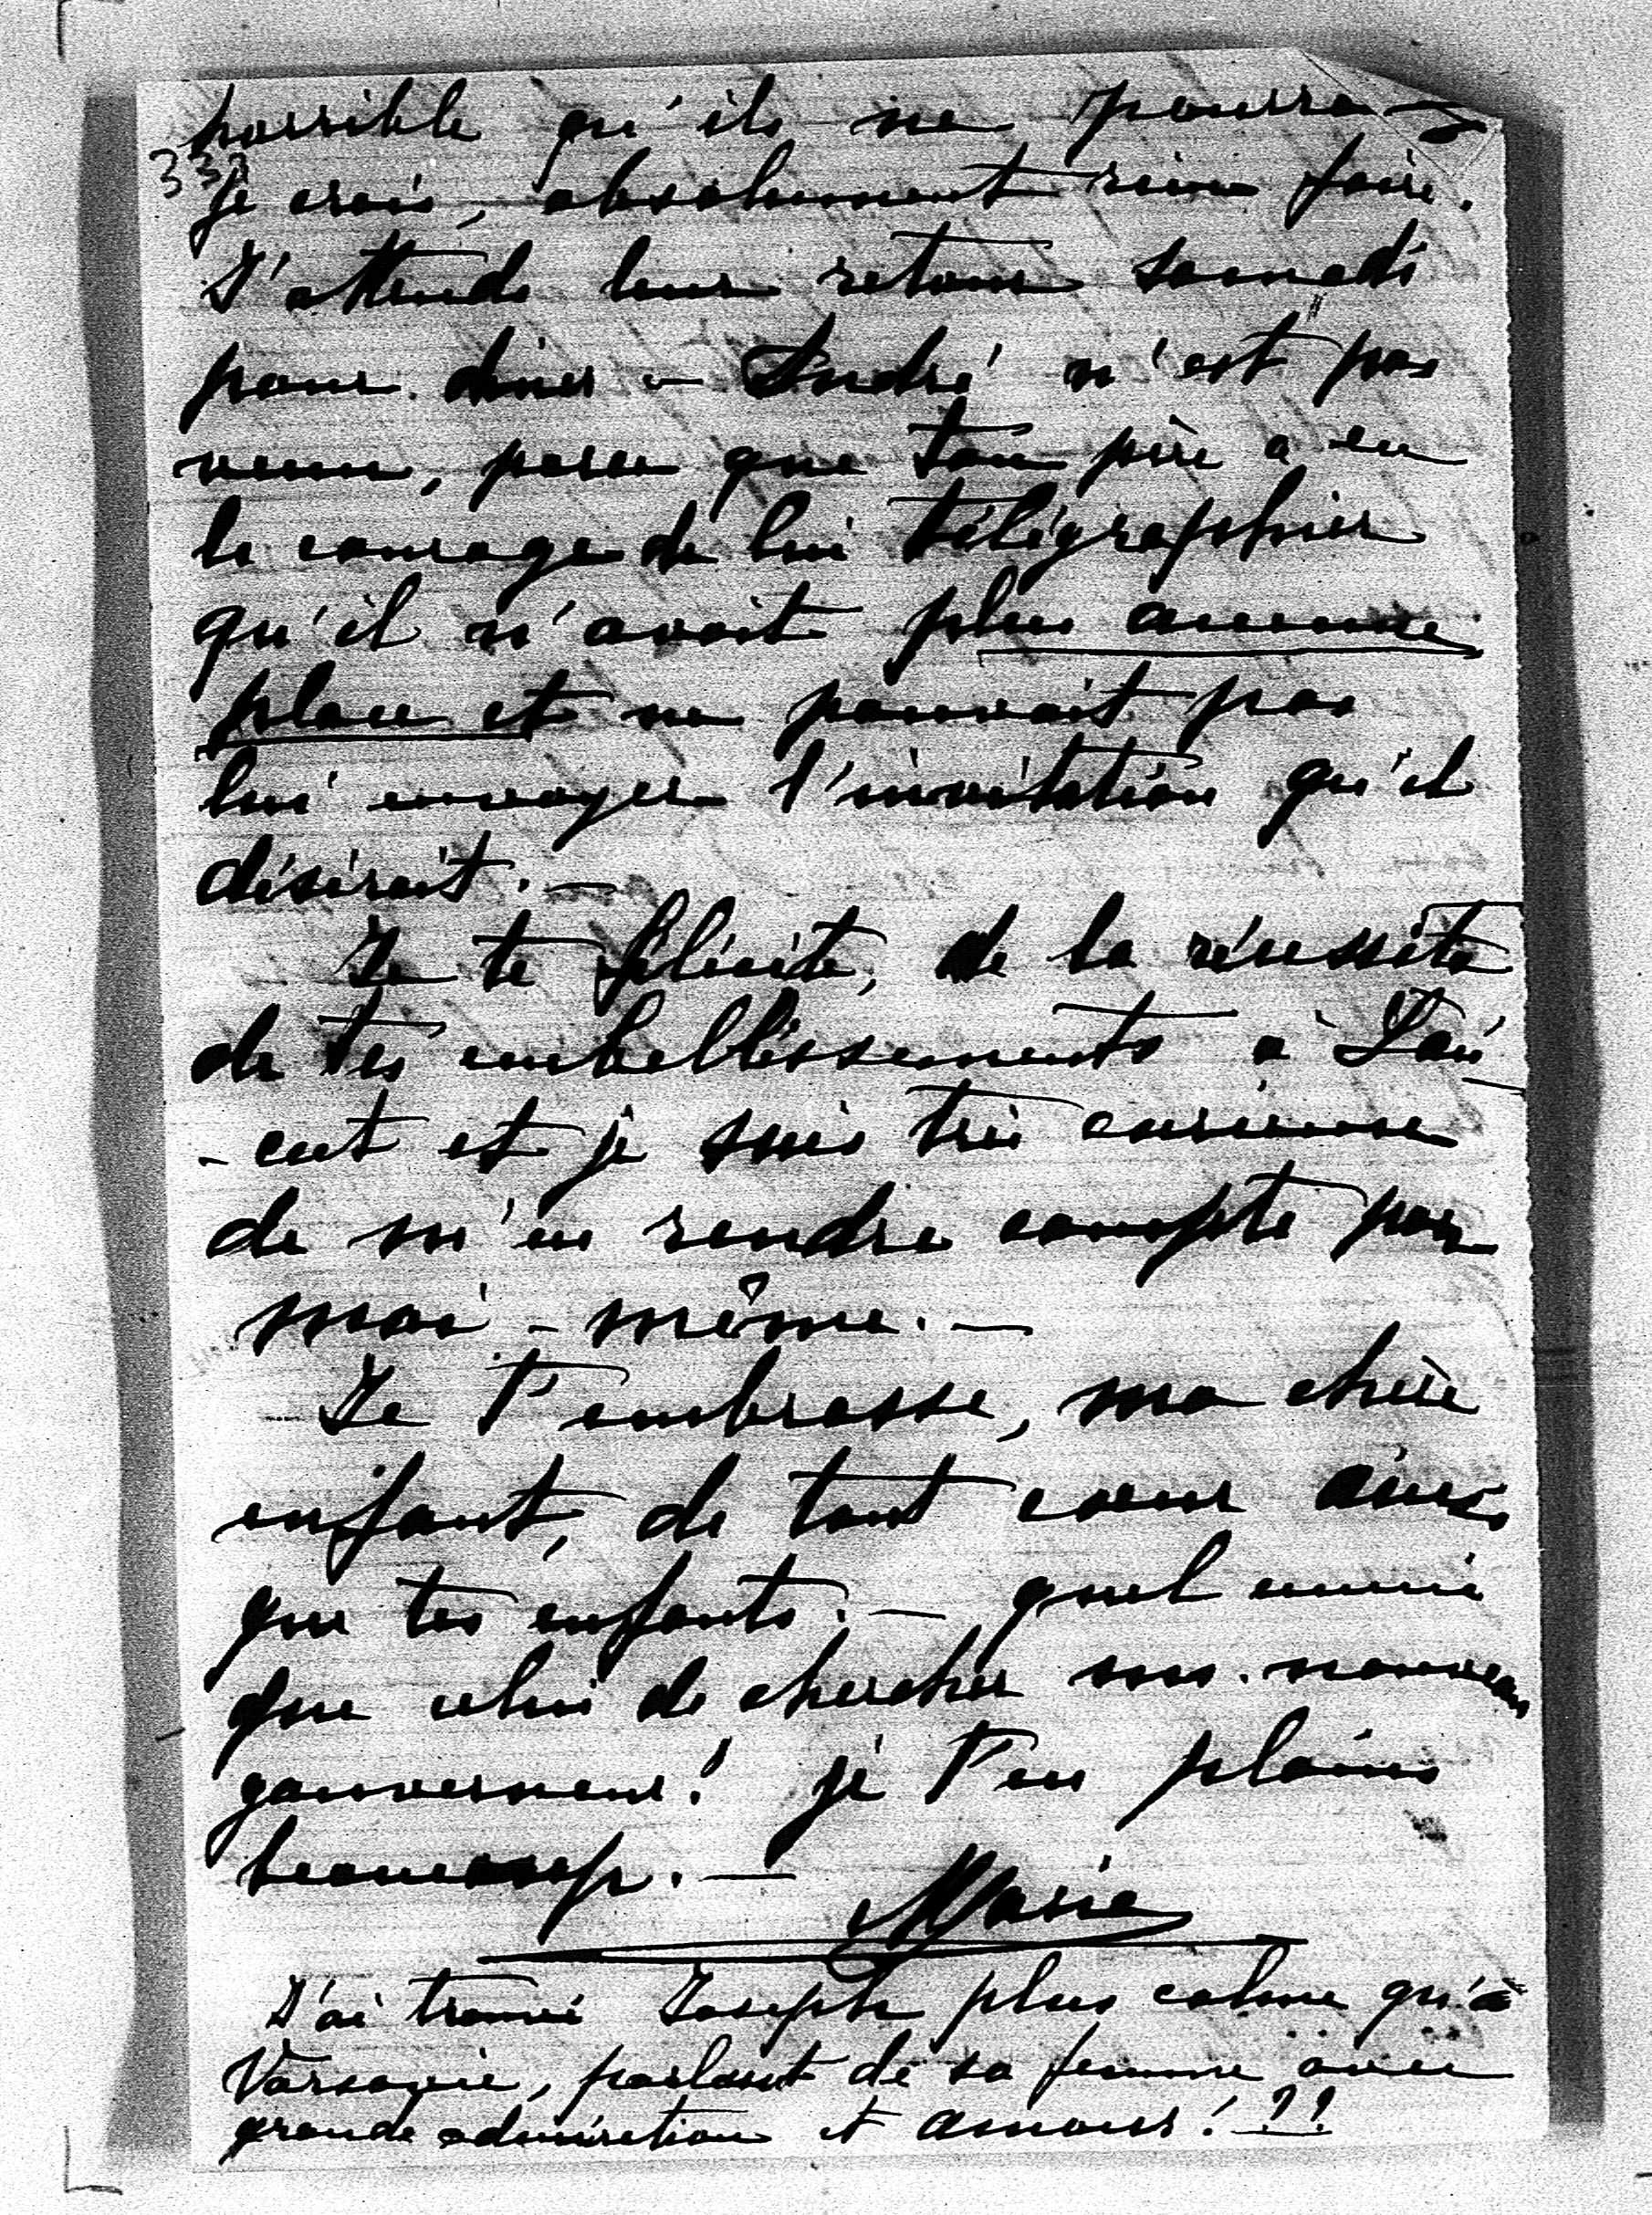 horrible qu'ils ne pourront
333
je crois, absolument rien faire.
J'attends leur retour samedi
pour diner – André n'est pas
venu, parce que ton père a eu
le courage de lui télégraphier
qu'il n'avait plus aucune
place et ne pouvait pas
lui envoyer l'invitation qu'il
désirait. –
Je te félicite, de la réussite
de tes embellissements à Łań
- cut et je suis très curieuse
de m'en rendre compte par
moi-même. –
Je t'embrasse, ma chère
enfant, de tout cœur ainsi
que tes enfants. – quel ennui
que celui de chercher un nouveau
gouverneur! je t'en plains
beaucoup. –
Marie
J'ai trouvé Joseph plus calme qu'à
Varsovie, parlant de sa femme avec
grande admiration et amour! ??